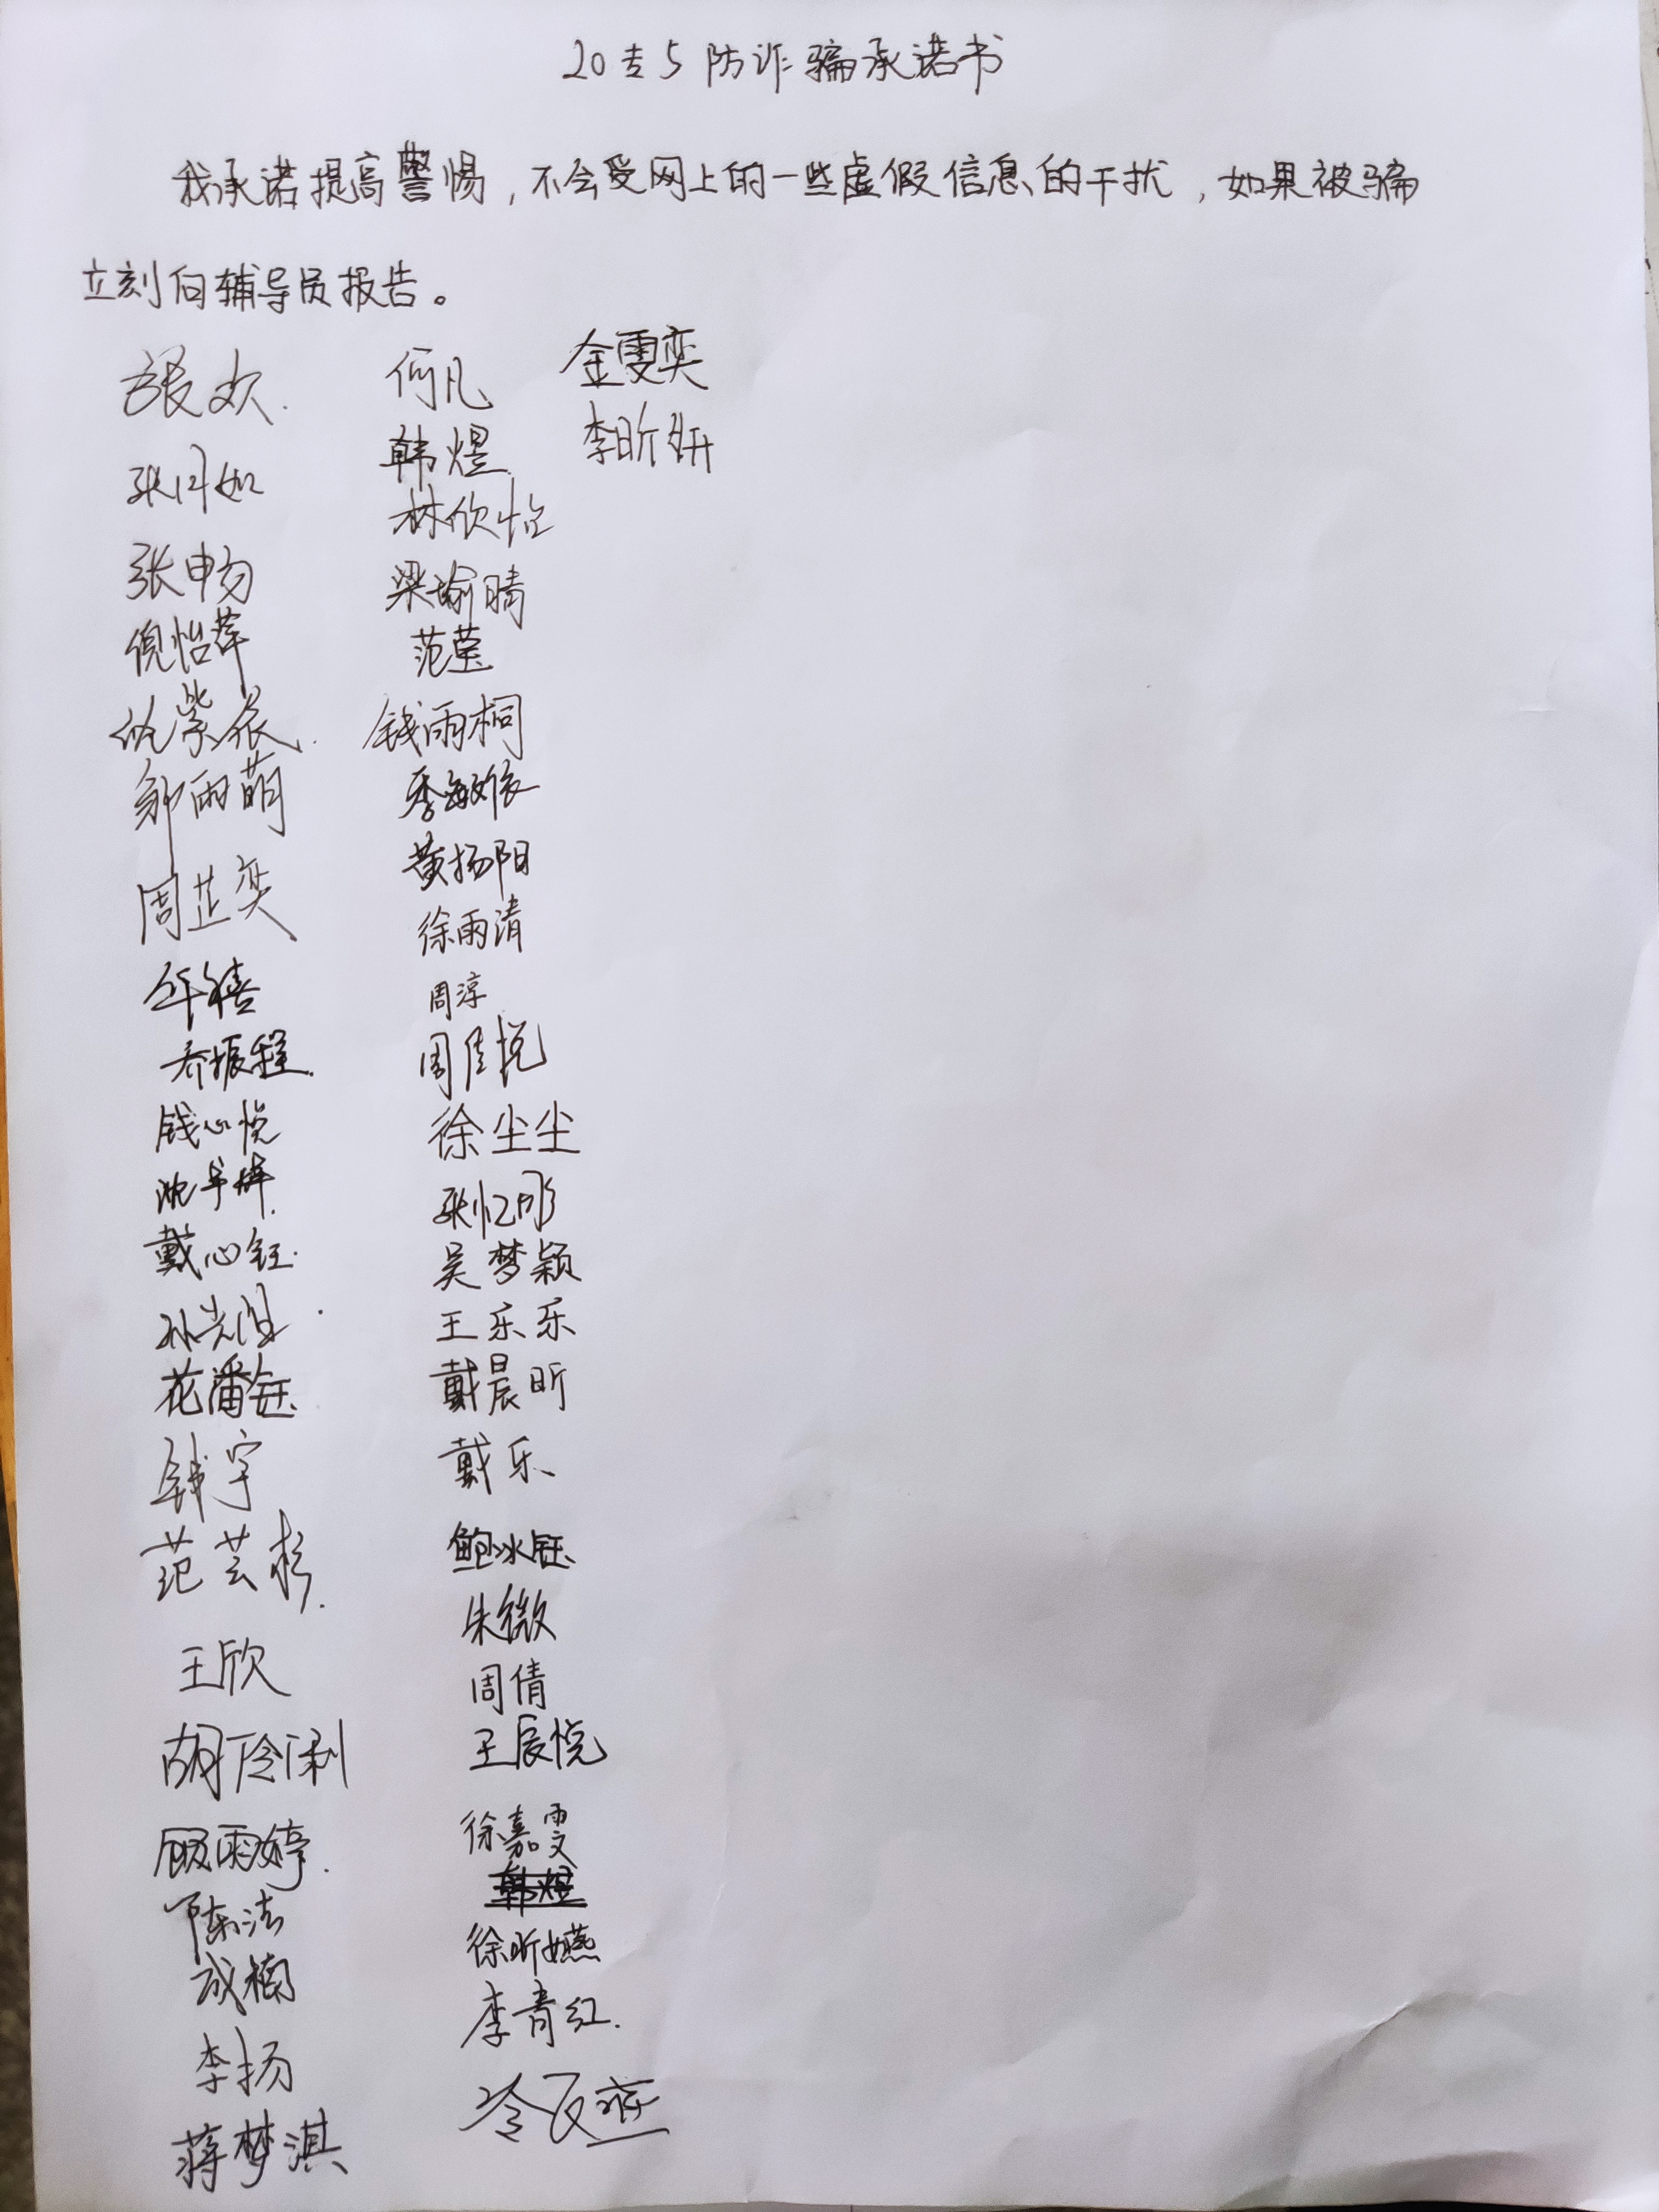 20专5防诈骗承诺书
我承诺提高警惕，不会受网上的一些虚假信息的干扰，如果被骗
立刻向辅导员报告。
张欢
张月如
张畅
倪怡苹
仇紫依
邹雨萌
周芷奕
年禧
乔振程
钱心悦
沈宇烨
戴心钰
花潘钰
钱宇
范芸杉
王欣
胡伶俐
顾雨婷
陈洁
成楠
李扬
蒋梦淇
何凡
韩煜
林欣怡
梁瑜晴
范莹
钱雨桐
季敏依
黄扬阳
徐雨清
周淳
周佳悦
徐尘尘
张忆彤
吴梦颖
王乐乐
戴晨昕
戴乐
鲍冰钰
朱微
周倩
王辰悦
徐嘉雯
韩煜
徐昕嬿
李青红
金雯奕
李昕妍